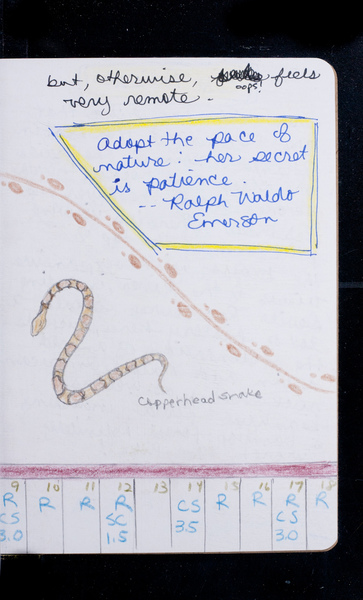 but, otherwise, feels
oops!
very remote.
Adopt the pace of
nature: her secret
is patience.
-- Ralph Waldo
Emerson
Copperhead snake
9 10 11 12 13 14 15 16 17 18
R R R R CS R R R R
CS SC 3.5 CS
3.0 1.5 3.0